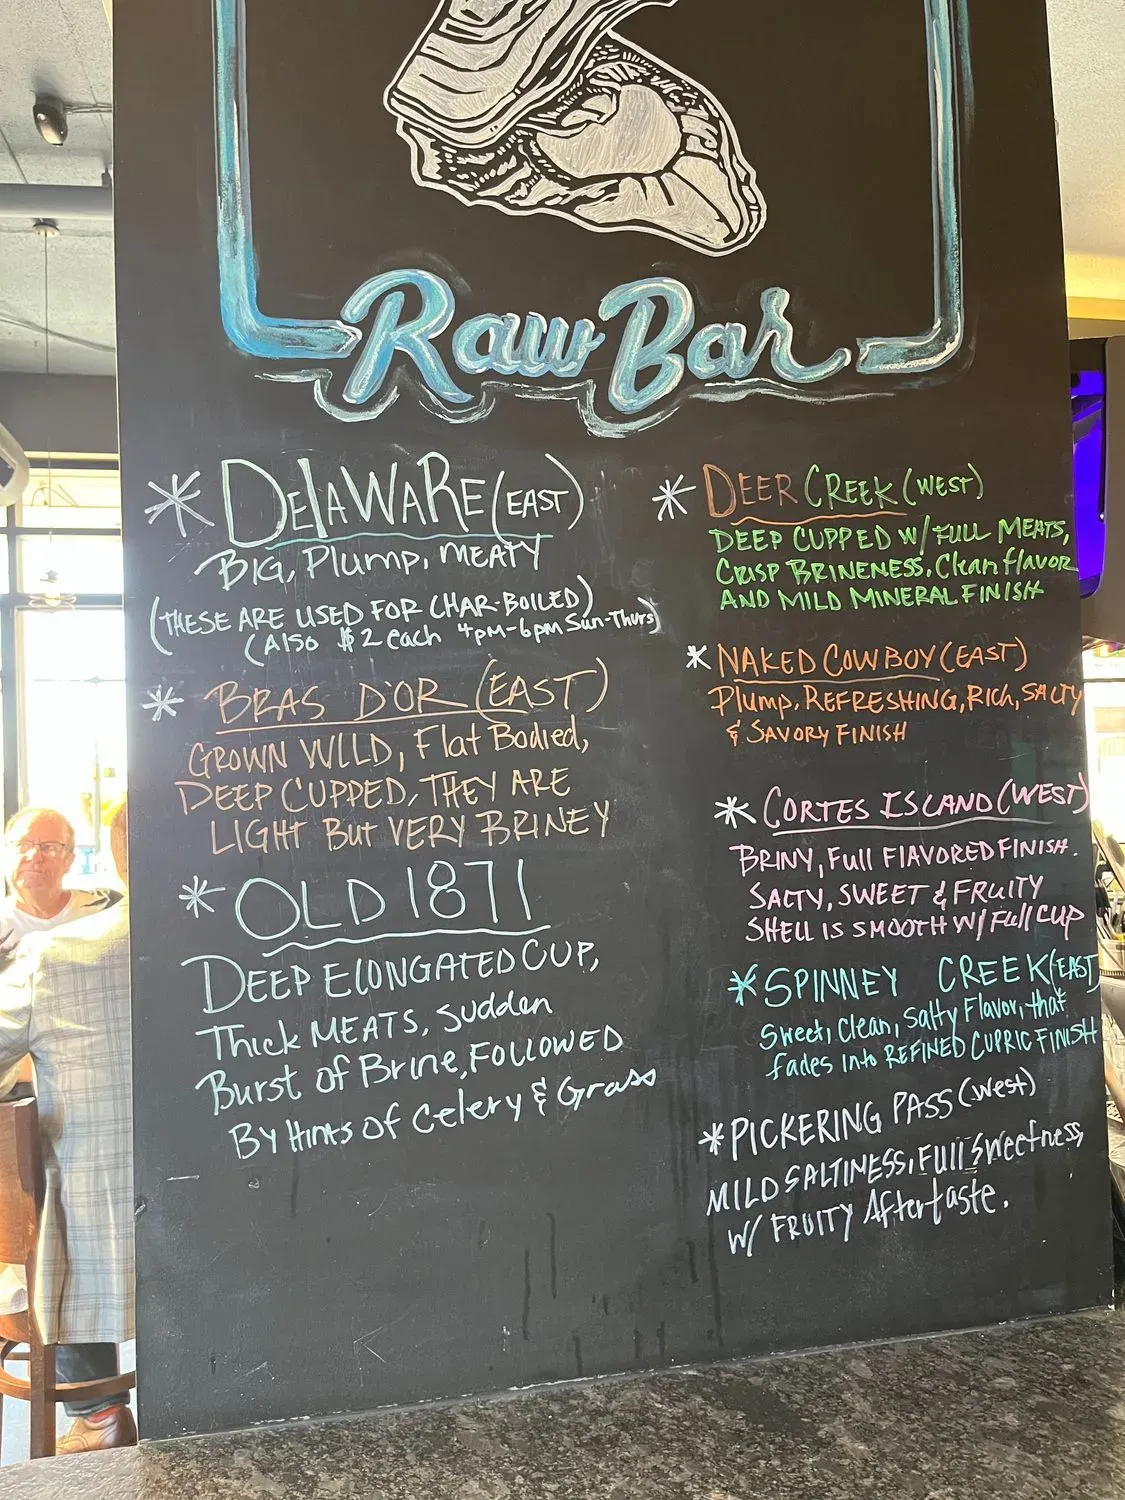 Raw Bar
* DELAWARE (EAST)
BIG, Plump, MEATY
(THESE ARE USED FOR CHAR-BOILED)
(Also $2 each 4pm-6pm Sun-Thurs)
* BRAS D'OR (EAST)
GROWN WILD, Flat Bodied,
DEEP CUPPED, THEY ARE
LIGHT But VERY BRINEY
* OLD 1871
DEEP ELONGATED CUP,
Thick MEATS, Sudden
Burst of Brine, FOLLOWED
By Hints of Celery & Grass
* DEER CREEK (WEST)
DEEP CUPPED W/ FULL MEATS,
CRISP BRINENESS, Clean flavor
AND MILD MINERAL FINISH
* NAKED COWBOY (EAST)
Plump, REFRESHING, Rich, SALTY
& SAVORY FINISH
* CORTES ISLAND (WEST)
BRINY, Full FlAVORED FINISH.
SALTY, SWEET & FRUITY
SHELL IS SMOOTH W/ Full CUP
* SPINNEY CREEK (EAST)
Sweet, Clean, Salty Flavor, that
fades into REFINED CUPRIC FINISH
* PICKERING PASS (West)
MILD SALTINESS, Full Sweetness,
W/ FRUITY Aftertaste.